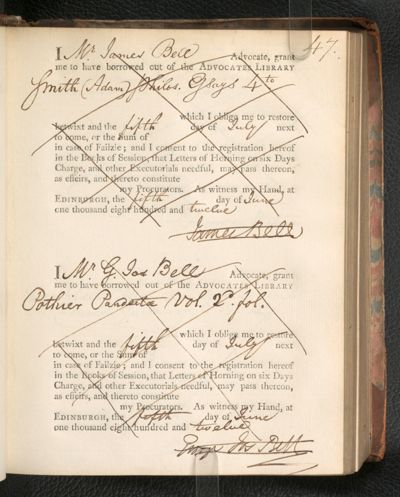 47.
I Mr James Bell Advocate, grant
me to have borrowed out of the ADVOCATES LIBRARY
Smith (Adam) philos. Essays 4to
which I oblige me to restore
betwixt and the fifth day of July next
to come, or the Sum of
in case of Failzie; and I consent to the registration hereof
in the Books of Session, that Letters of Horning on six Days
Charge, and other Executorials needful, may pass thereon,
as effeirs, and thereto constitute
my Procurators. As witness my Hand, at
EDINBURGH, the fifth day of June
one thousand eight hundred and twelve
James Bell
I Mr G. Jos Bell Advocate, grant
me to have borrowed out of the ADVOCATES LIBRARY
Pothier Pandects Vol. 2d. fol.
which I oblige me to restore
betwixt and the fifth day of July next
to come, or the Sum of
in case of Failzie; and I consent to the registration hereof
in the Books of Session, that Letters of Horning on six Days
Charge, and other Executorials needful, may pass thereon,
as effeirs, and thereto constitute
my Procurators. As witness my Hand, at
EDINBURGH, the day of June
one thousand eight hundred and twelve
Jos Bell